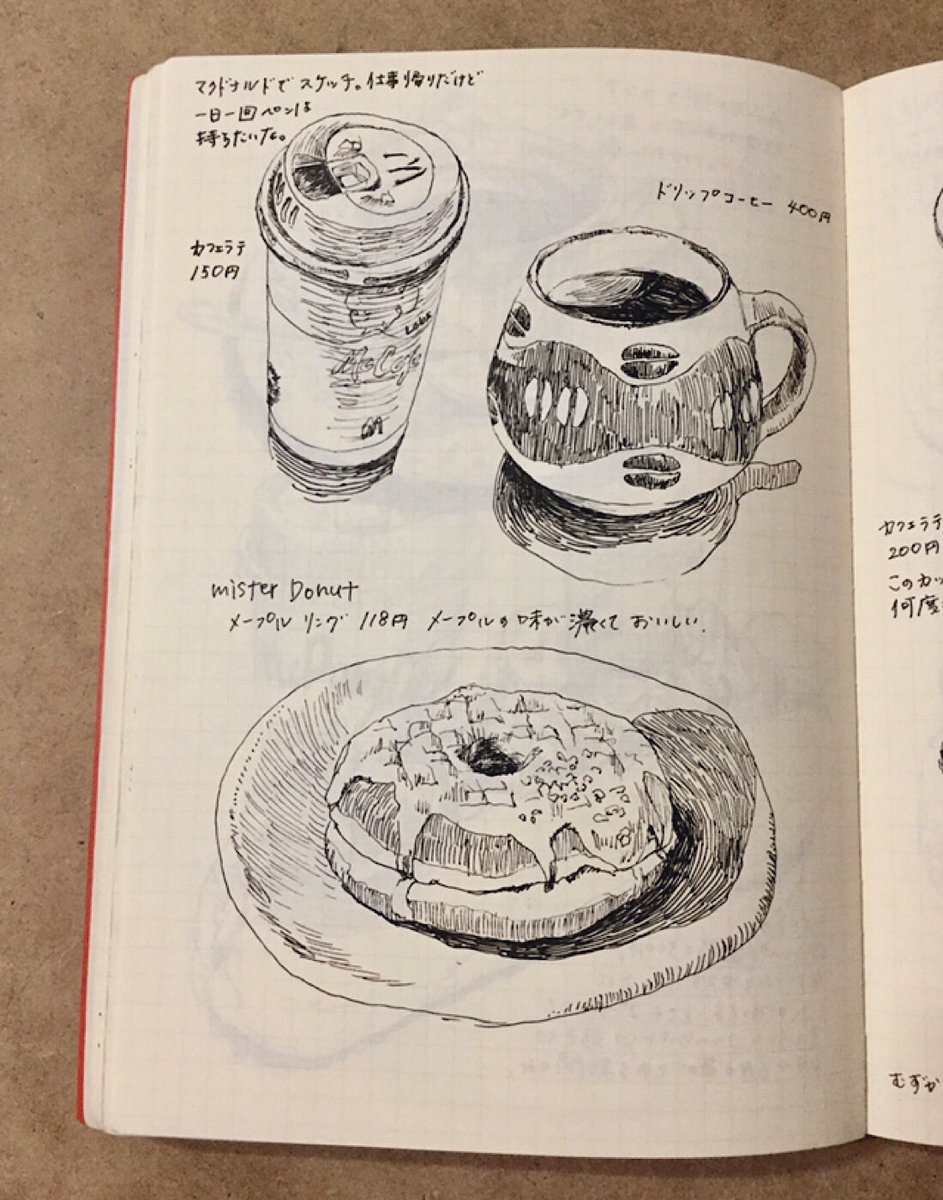 マクドナルドでスケッチ。仕事帰りだけど
一日一回ペンは
持ちたいな。
カフェラテ
150円
ドリップコーヒー 400円
McCafé
mister Donut
メープルリング 118円 メープルの味が濃くておいしい。
カフェラテ
200円
このカッ
何度
むずか